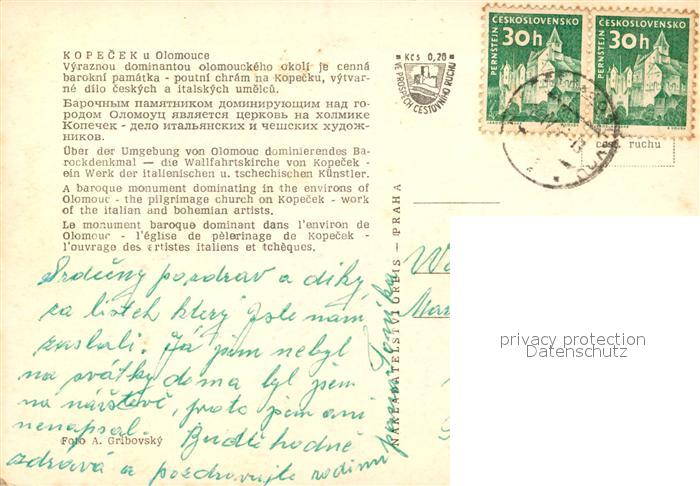 KOPEČEK u Olomouce
Výraznou dominantou olomouckého okolí je cenná
barokní památka - poutní chrám na Kopečku, výtvar-
né dílo českých a italských umělců.
Барочным памятником доминирующим над го-
родом Оломоуц является церковь на холмике
Копечек - дело итальянских и чешских худож-
ников.
Über der Umgebung von Olomouc dominierendes Ba-
rockdenkmal — die Wallfahrtskirche von Kopeček -
ein Werk der italienischen u. tschechischen Künstler.
A baroque monument dominating in the environs of
Olomouc - the pilgrimage church on Kopeček - work
of the italian and bohemian artists.
Le monument baroque dominant dans l'environ de
Olomouc - l'église de pèlerinage de Kopeček -
l'ouvrage des artistes italiens et tchèques.
Srdečný pozdrav a díky
za lístek který jste nám
zaslali. Já jsem nebyl
na svátky doma byl jsem
na návštěvě, proto jsem ani
nenapsal. Buďte hodně
zdravá a pozdravujte rodinu
Foto A. Gribovský
Kčs 0,20
VE PROSPĚCH CESTOVNÍHO RUCHU
NAKLADATELSTVÍ ORBIS — PRAHA
ČESKOSLOVENSKO
PERNŠTEJN
30h
ČESKOSLOVENSKO
PERNŠTEJN
30h
cest. ruchu
privacy protection
Datenschutz